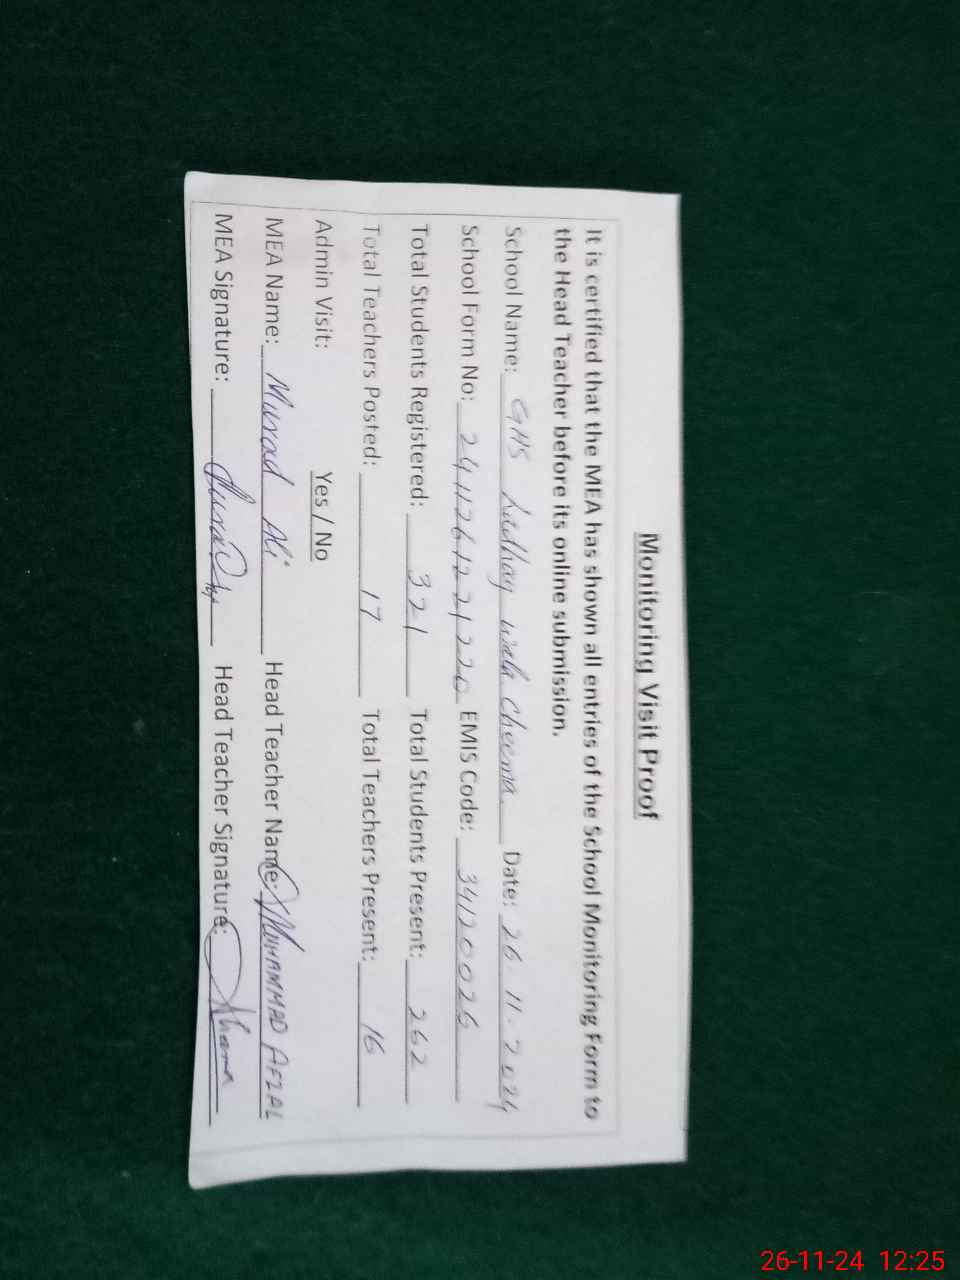 Monitoring Visit Proof
It is certified that the MEA has shown all entries of the School Monitoring Form to
the Head Teacher before its online submission.
School Name: GHS Ladhay wala cheema Date: 26.11.2024
School Form No: EMIS Code: 34120026
Total Students Registered: 321 Total Students Present: 262
Total Teachers Posted: 17 Total Teachers Present: 16
Admin Visit: Yes / No
MEA Name: Murad Ali Head Teacher Name: MUHAMMAD AFZAL
MEA Signature: Head Teacher Signature:
26-11-24 12:25